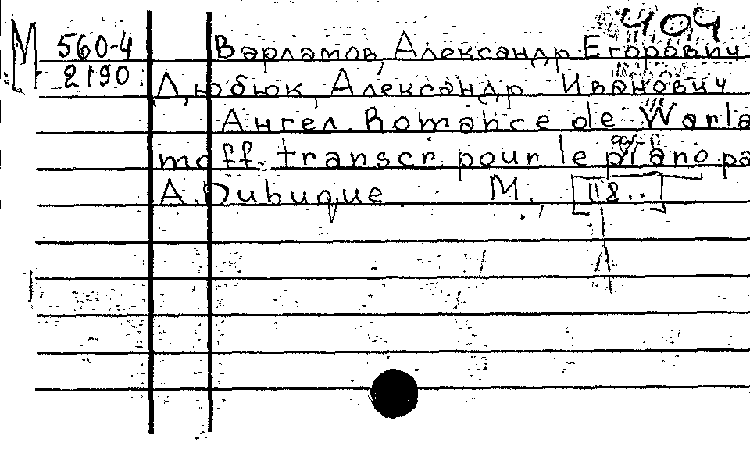 409
М 560-4 Варламов, Александр Егорович
2190 Дюбюк, Александр Иванович
Ангел. Romance de Warla
moff. transcr. pour le piano pa
A. Dubuque. М., [18..]